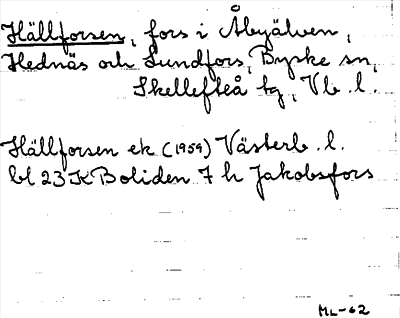 Hällforsen, fors i Åbyälven,
Hednäs och Sundfors, Byske sn,
Skellefteå tg, Vb. l.
Hällforsen ek (1959) Västerb. l.
bl 23 K Boliden 7 h Jakobsfors
ML-62